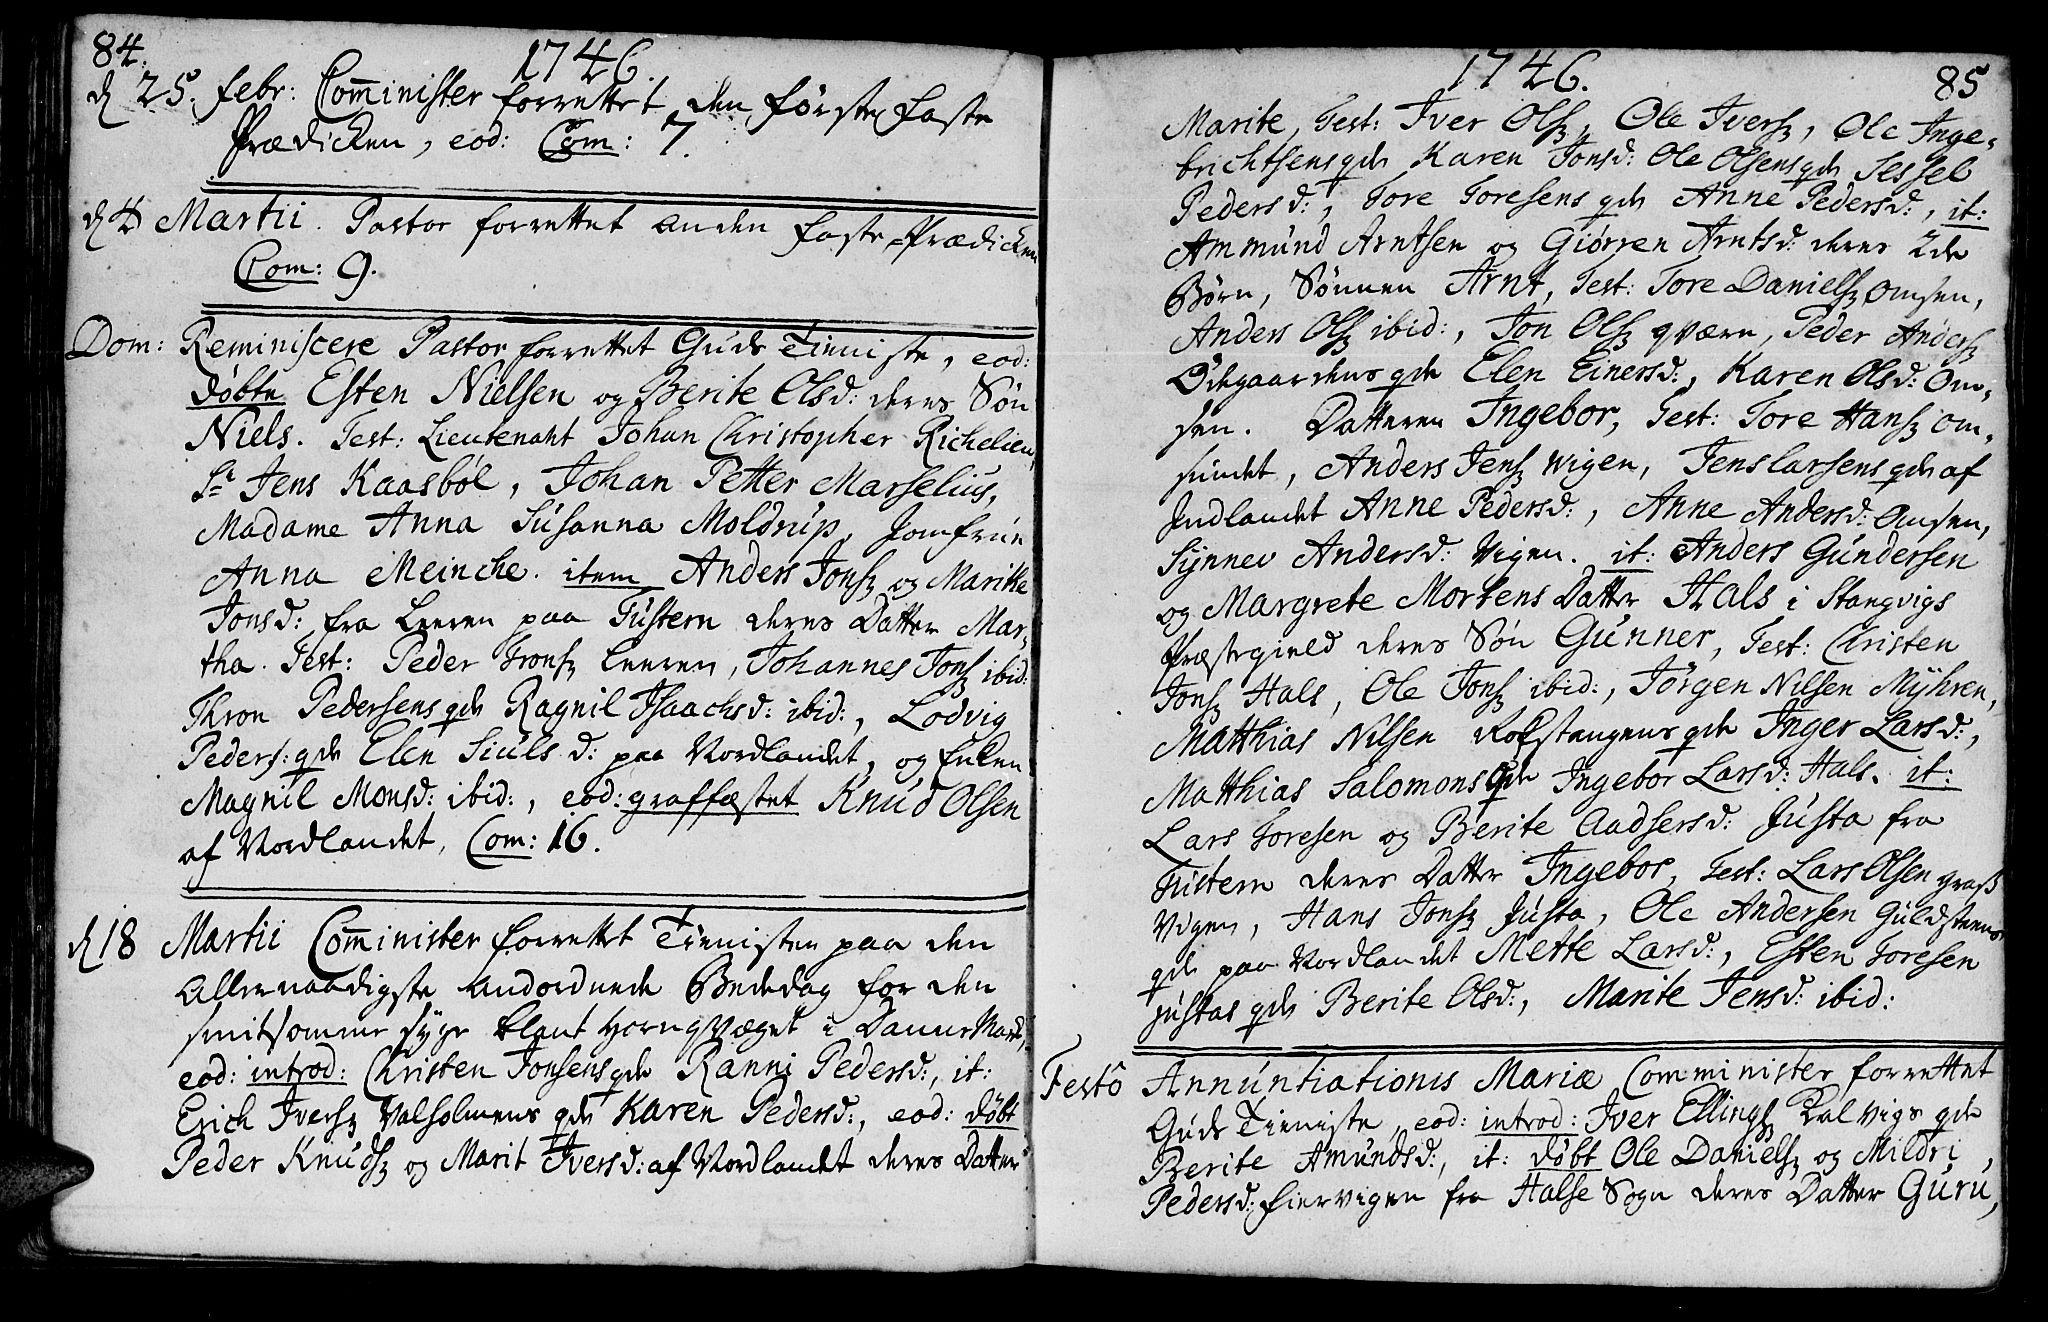 84.
1746.
d 25. febr: Com̅inister forrettet den första faste
Prædicken, eod: Com: 7.
d 4 Martii. Pastor forrettet anden faste-Prædicken
Com: 9.
Dom: Reminiscere Pastor forrettet Guds Tieniste, eod:
døbte Esten Nielsen og Berite Olsd: deres Søn
Niels. Test: Lieutenant Johan Christopher Richelieu,
Sr Jens Kaasbøl, Johan Petter Marselius,
Madame Anna Susanna Moldrup, Jomfrue
Anna Meincke. item Anders Jonss og Marithe
Jonsd: fra Leeren paa Tustern deres Datter Mar-
tha. Test: Peder Tronss Leeren, Johannes Jonss ibid:
Thron Pedersens qde Ragnil Isaachsd: ibid:, Lodvig
Peders: qde Elen Siulsd: paa Nordlandet, og Enken
Magnil Monsd: ibid:, eod: graffæstet Knud Olsen
af Nordlandet, Com: 16.
d 18 Martii Com̅inister forrettet Tienisten paa den
Allernaadigste anordnede Bededag for den
smitsomme syge blant Hornqvæget i DanneMark,
eod: introd: Christen Jonsens qde Ranni Pedersd:, it:
Erich Iverss Valholmens qde Karen Pedersd:, eod: døbt
Peder Knudss og Marit Iversd: af Nordlandet deres Datter
1746.
85
Marite, Test: Iver Olss, Ole Iverss, Ole Inge-
brichtsens qde Karen Jonsd: Ole Olsens qde Sessel
Pedersd:, Tore Toresens qde Anne Pedersd:, it:
Ammund Arntsen og Giørren Arntsd: deres 2de
Børn, Sønnen Arnt, Test: Tore Danielss Omsen,
Anders Olss ibid:, Jon Olss qværn, Peder Anderss
Ødegaardens qde Elen Einersd:, Karen Olsd: Om-
sen. Datteren Ingebor, Test: Tore Hanss Om-
sundet, Anders Jenss Wigen, Jens Larsens qde af
Indlandet Anne Pedersd:, Anne Andersd: Omsen,
Synnev Andersd: Vigen. it: Anders Gundersen
og Margrete Mortens Datter Hals i Stangvigs
Præstegield deres Søn Gunner, Test: Christen
Jonss Hals, Ole Jonss ibid:, Jörgen Nilsen Mÿhren,
Matthias Nilsen Rolstangens qde Inger Larsd:,
Matthias Salomons qde Ingebor Larsd: Hals. it:
Lars Toresen og Berite Aadsersd: Justa fra
Tustern deres Datter Ingebor, Test: Lars Olsen Graß
Vigen, Hans Jonss Justa, Ole Andersen Guldsteens
qde paa Nordlandet Mette Larsd:, Esten Toresen
Justas qde Berite Olsd:, Marite Jensd: ibid:
Festô Annuntiationis Mariæ Comminister forrettet
Guds Tieniste, eod: introd: Iver Ellingss Kalvigs qde
Berite Amundsd:, it: døbt Ole Danielss og Mildri
Pedersd: Fiervigen fra Halse Sogn deres Datter Guru,